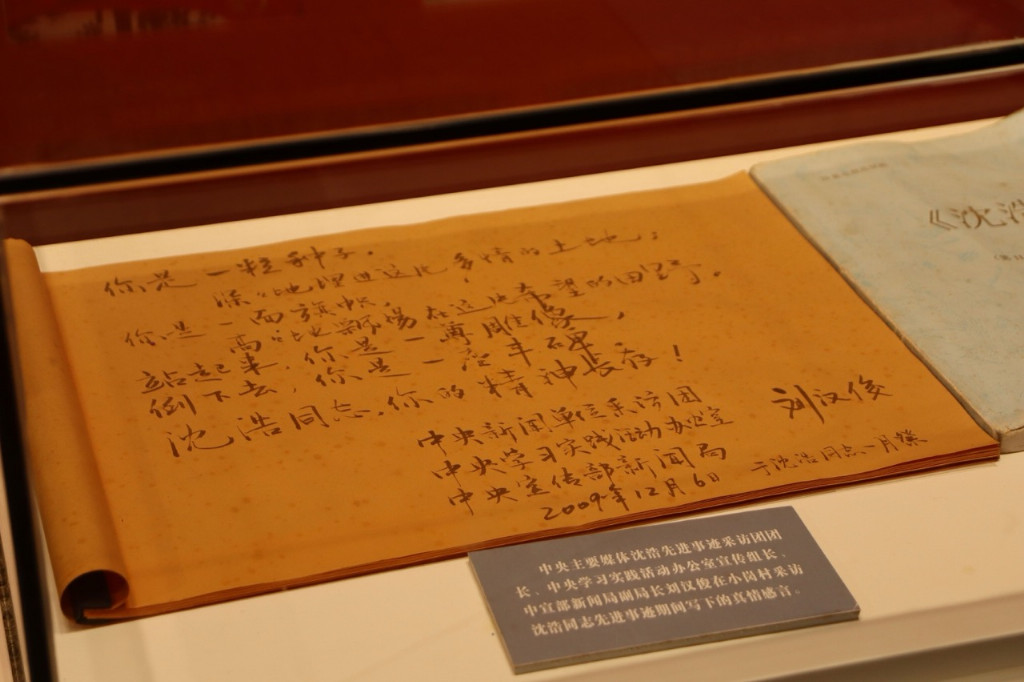 你是一粒种子，
深深地埋进这片多情的土地；
你是一面旗帜，
高高地飘扬在这片希望的田野。
站起来，你是一尊雕像，
倒下去，你是一座丰碑
沈浩同志，你的精神长存！
中央新闻单位采访团
中央学习实践活动办公室
中央宣传部新闻局
2009年12月6日
刘汉俊
于沈浩同志一月祭
《沈浩
中央主要媒体沈浩先进事迹采访团团
长、中央学习实践活动办公室宣传组长、
中宣部新闻局副局长刘汉俊在小岗村采访
沈浩同志先进事迹期间写下的真情感言。